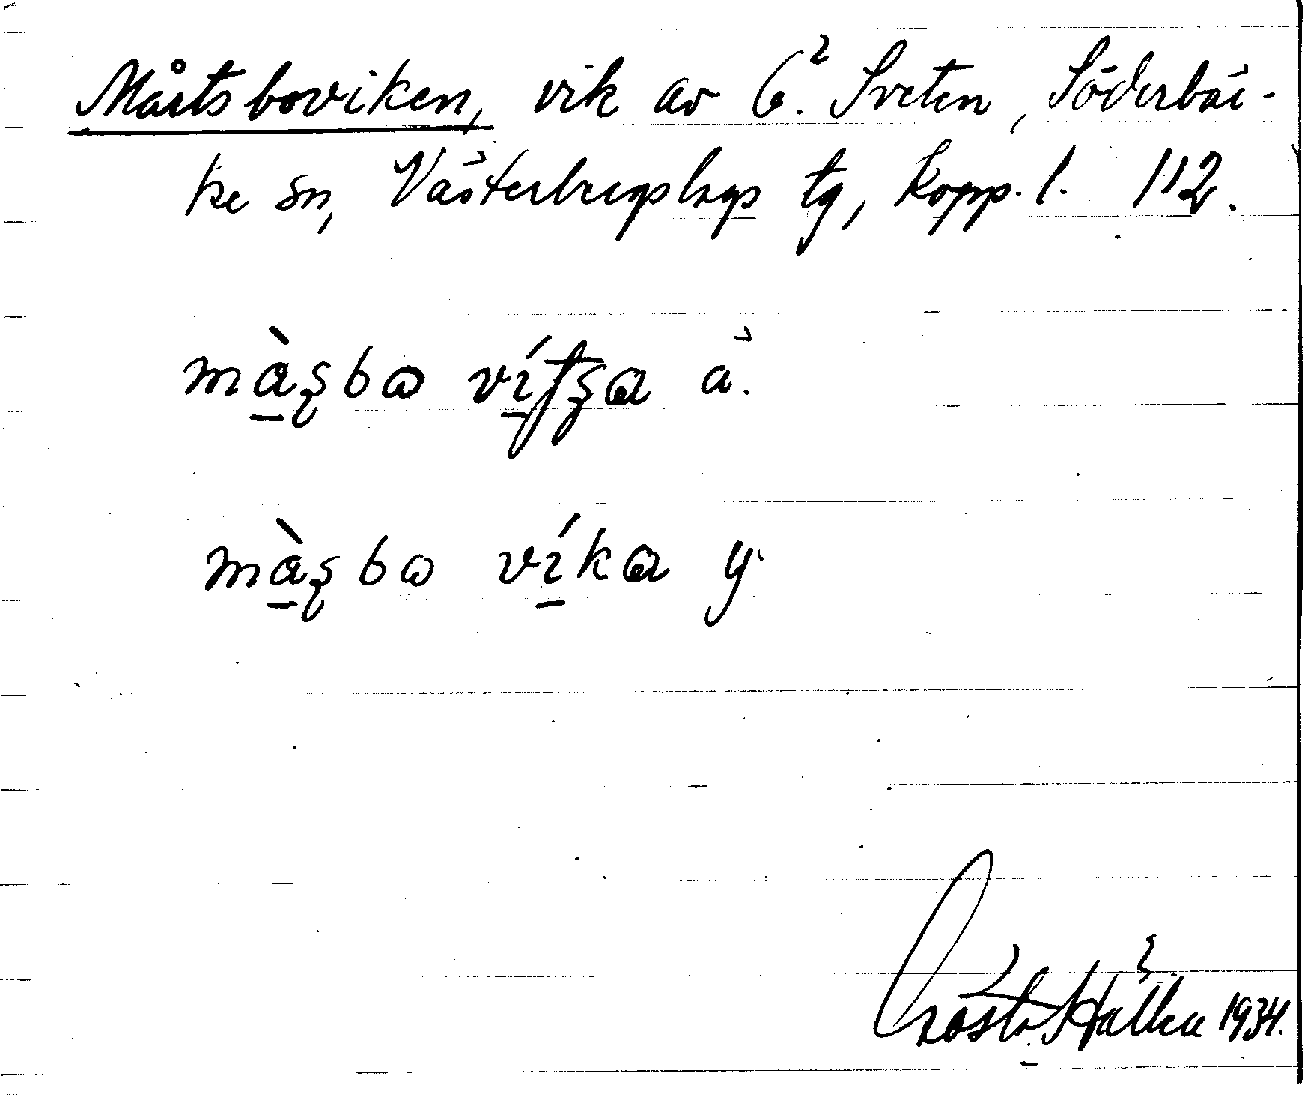 Mårtsboviken, vik av Ö. Sveten, Söderbär-
ke sn, Västerbergslags tg, Kopp. l. 112.
màʂbɷ víʈʂa ä.
màʂbɷ víka y.
Gösta 1934.